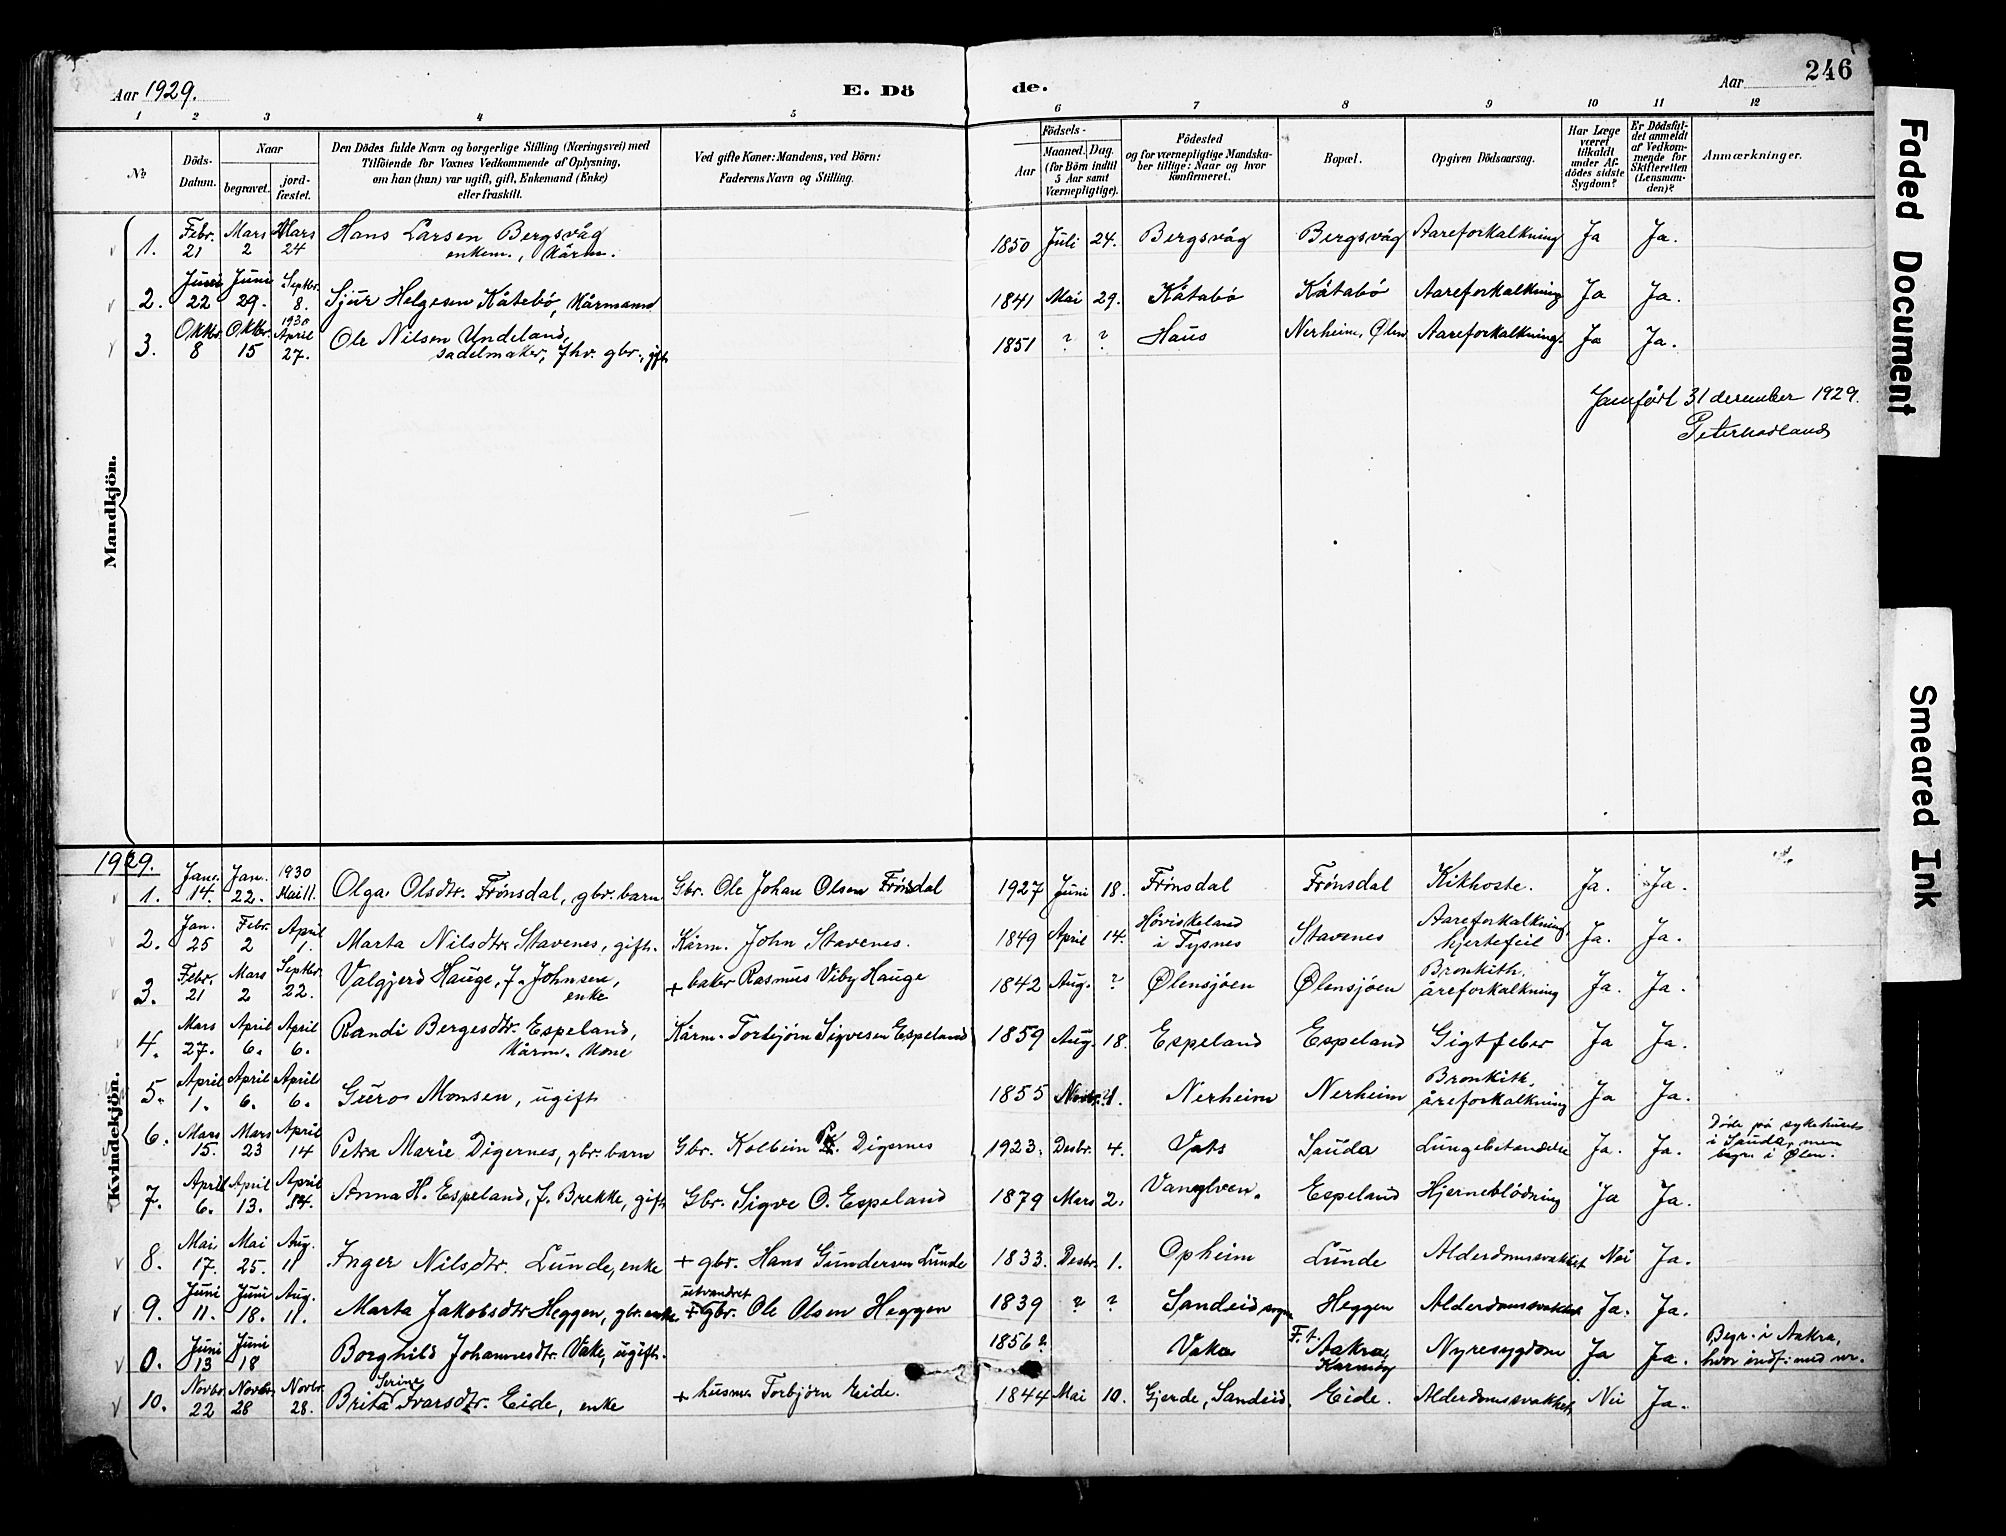 Aar 1929.
E. Dö
de.
Aar
246
1 2 3 4 5 6 7 8 9 10 11 12
№
Döds-
Datum.
Naar
begravet.
jord-
fæstet.
Den Dödes fulde Navn og borgerlige Stilling (Næringsvei) med
Tilföiende for Voxnes Vedkommende af Oplysning,
om han (hun) var ugift, gift, Enkemand (Enke)
eller fraskilt.
Ved gifte Koner: Mandens, ved Börn:
Faderens Navn og Stilling.
Födsels-
Aar
Maaned. Dag.
(for Börn indtil
5 Aar samt
Værnepligtige).
Födested
og for værnepligtige Mandska-
ber tillige: Naar og hvor
konfirmeret.
Bopæl.
Opgiven Dödsaarsag.
Har Læge
været
tilkaldt
under Af-
dödes sidste
Sygdom?
Er Dödsfal-
det anmeldt
af Vedkom-
mende for
Skifteretten
(Lensman-
den)?
Anmærkninger.
Mandkjön.
1. Febr. 21 Mars 2 Mars 24 Hans Larsen Bergsvåg enkem., kårm. 1850 Juli 24. Bergsvåg Bergsvåg Aareforkalkning Ja Ja.
2. Juni 22 Juni 29. Septbr. 8. Sjur Helgesen Kåtebö, kårmand 1841 Mai 29. Kåtabö Kåtabö Aareforkalkning Ja Ja.
3. Oktbr. 8 Oktbr. 15 1930 April 27. Ole Nilsen Undeland, sadelmaker, fhv. gbr., gift 1851 ? ? Haus Nerheim, Ølen Aareforkalkning. Ja Ja.
Jamfört 31 desember 1929.
Peter Hadland
Kvindekjön.
1929.
1. Jan. 14. Jan. 22. 1930 Mai 11. Olga Olsdtr. Frönsdal, gbr. barn Gbr. Ole Johan Olsen Frönsdal 1927 Juni 18. Frönsdal Frönsdal Kikhoste. Ja. Ja.
2. Jan. 25 Febr. 2 April 1. Marta Nilsdtr. Stavenes, gift. Kårm. John Stavenes. 1849 April 14. Höviskeland i Tysnes Stavenes Aareforkalkning hjertefeil Ja. Ja.
3. Febr. 21 Mars 2 Septbr. 22. Valgjerd Hauge, f. Johnsen, enke + baker Rasmus Viby Hauge 1842 Aug. ? Ølensjøen Ølensjøen Bronkith. åreforkalkning Ja. Ja.
4. Mars 27. April 6. April 6. Randi Bergesdtr. Espeland, kårm. kone Kårm. Torbjörn Sigvesen Espeland 1859 Aug. 18. Espeland Espeland Gigtfeber Ja Ja.
5. April 1. April 6. April 6. Guro Monsen, ugift 1855 Novbr. 21. Nerheim Nerheim Bronkith, åreforkalkning Ja Ja.
6. Mars 15. Mars 23 April 14 Petra Marie Digernes, gbr. barn Gbr. Kolbein Digernes 1923. Desbr. 4. Vats Sauda Lungebetændelse Ja. Ja. Døde på sykehuset i Sauda, men begr. i Ølen.
7. April 6. April 13. April 14. Anna H. Espeland, f. Brekke, gift Gbr. Sigve O. Espeland 1879 Mars 2. Vanylven. Espeland Hjerneblödning Ja Ja.
8. Mai 17. Mai 25. Aug. 11 Inger Nilsdtr. Lunde, enke + gbr. Hans Gundersen Lunde 1833. Desbr. 1. Opheim Lunde Alderdomssvakhet Nei Ja.
9. Juni 11. Juni 18. Aug. 11. Marta Jakobsdtr Heggen, gbr. enke utvandret + Gbr. Ole Olsen Heggen 1839 ? ? Sandeid sogn Heggen Alderdomssvakhet Ja. Ja.
0. Juni 13 Juni 18 Borghild Johannesdtr. Vake, ugift. 1856? Vaka F.t. Aakra, Karmöy Nyresygdom Ja Ja. Begr. i Aakra, hvor indf. med nr.
10. Novbr. 22 Novbr. 28 Novbr. 28. Brita Serine Ivarsdtr. Eide, enke + husm. Torbjörn Eide. 1844 Mai 10. Gjerde, Sandeid. Eide. Alderdomssvakhet Nei Ja.
Faded Document
Smeared Ink